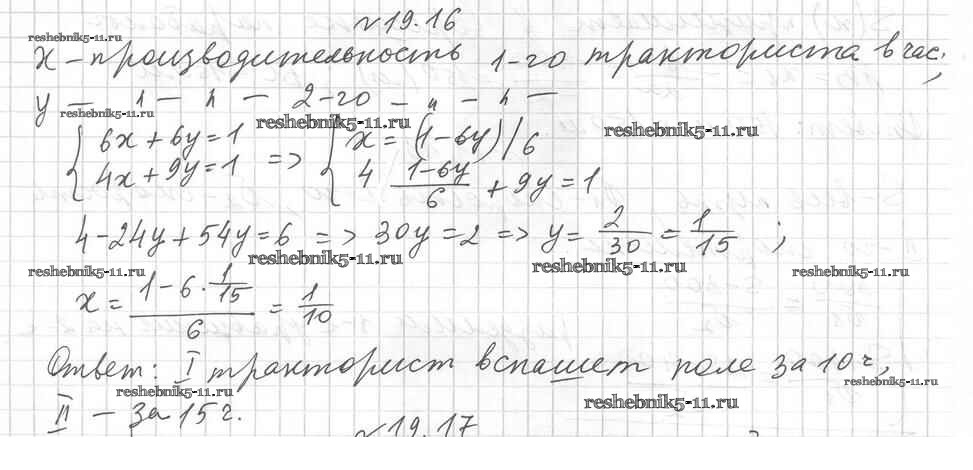 №19.16
reshebnik5-11.ru
x – производительность 1-го тракториста в час;
y – 1 – " – 2-го – " – " –
reshebnik5-11.ru reshebnik5-11.ru reshebnik5-11.ru
{ 6x + 6y = 1 => { x = (1-6y)/6
{ 4x + 9y = 1 { 4 (1-6y)/6 + 9y = 1
4 - 24y + 54y = 6 => 30y = 2 => y = 2/30 = 1/15 ;
reshebnik5-11.ru reshebnik5-11.ru reshebnik5-11.ru reshebnik5-11.ru
x = (1 - 6 · 1/15)/6 = 1/10
Ответ: I тракторист вспашет поле за 10 ч,
reshebnik5-11.ru reshebnik5-11.ru
II – за 15 ч.
reshebnik5-11.ru
№19.17